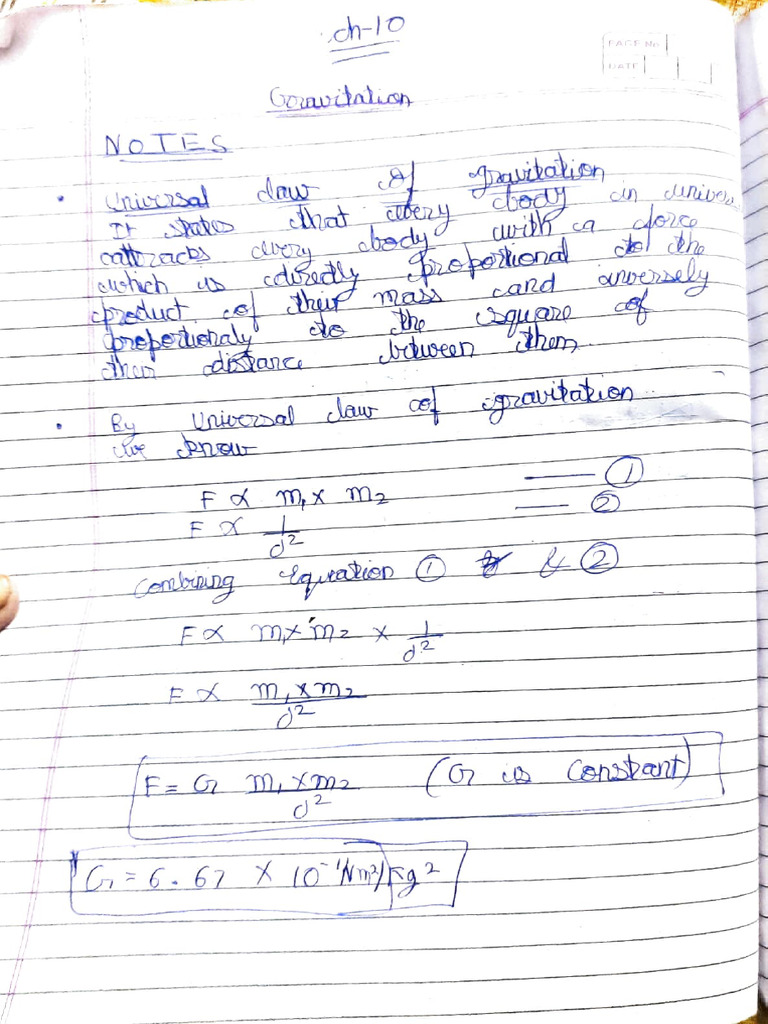 ch-10
PAGE No.
DATE
Gravitation
NOTES
• Universal law of gravitation
It states that every body in univers
attracts every body with a force
which is directly proportional to the
product of their mass and inversely
proportionaly to the square of
their distance between them.
• By Universal law of gravitation
we know
F ∝ m₁ × m₂ —— ①
F ∝ 1/d² —— ②
Combining Equation ① & ②
F ∝ m₁ × m₂ × 1/d²
F ∝ m₁ × m₂/d²
F = G m₁ × m₂/d² (G is Constant)
G = 6.67 × 10 Nm²/kg²